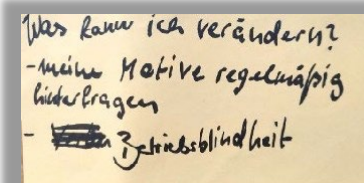 Was kann ich verändern?
- meine Motive regelmäßig
hinterfragen
- Betriebsblindheit